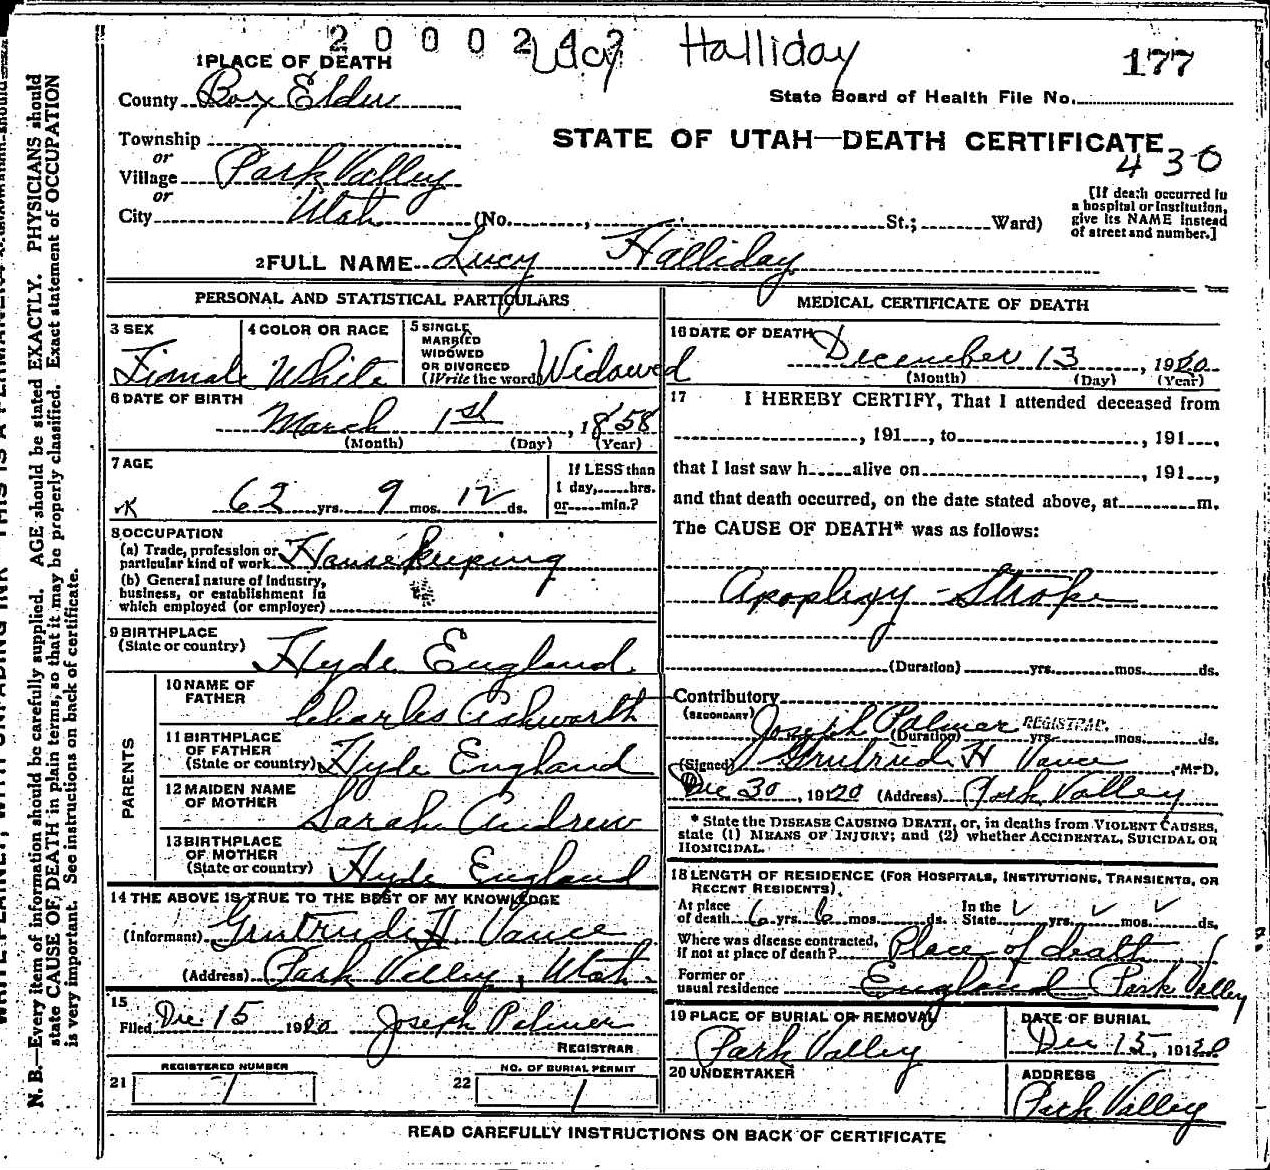 2 0 0 0 2 4 2 Lucy Halliday 177
1 PLACE OF DEATH
County Box Elder
State Board of Health File No.
Township
STATE OF UTAH—DEATH CERTIFICATE
or
430
Village Park Valley
or
City Utah (No. , St.; Ward)
[If death occurred in
a hospital or institution,
give its NAME instead
of street and number.]
2 FULL NAME Lucy Halliday
PERSONAL AND STATISTICAL PARTICULARS
3 SEX
Fimale
4 COLOR OR RACE
White
5 SINGLE
MARRIED
WIDOWED
OR DIVORCED
(Write the word) Widowed
6 DATE OF BIRTH
March 1st, 1858
(Month) (Day) (Year)
7 AGE
62 yrs. 9 mos. 12 ds.
If LESS than
1 day, hrs.
or min.?
8 OCCUPATION
(a) Trade, profession or
particular kind of work Housekeeping
(b) General nature of industry,
business, or establishment in
which employed (or employer)
9 BIRTHPLACE
(State or country) Hyde England
PARENTS
10 NAME OF
FATHER Charles Ashworth
11 BIRTHPLACE
OF FATHER
(State or country) Hyde England
12 MAIDEN NAME
OF MOTHER Sarah Andrew
13 BIRTHPLACE
OF MOTHER
(State or country) Hyde England
14 THE ABOVE IS TRUE TO THE BEST OF MY KNOWLEDGE
(Informant) Gertrude H. Vance
(Address) Park Valley, Utah
15
Filed Dec 15 1920 Joseph Palmer
REGISTRAR
21 REGISTERED NUMBER
1
22 NO. OF BURIAL PERMIT
1
MEDICAL CERTIFICATE OF DEATH
16 DATE OF DEATH
December 13, 1920
(Month) (Day) (Year)
17 I HEREBY CERTIFY, That I attended deceased from
, 191 , to , 191 ,
that I last saw h alive on , 191 ,
and that death occurred, on the date stated above, at m.
The CAUSE OF DEATH* was as follows:
Apoplexy - Stroke
(Duration) yrs. mos. ds.
Contributory
(SECONDARY) Joseph Palmer REGISTRAR
(Duration) yrs. mos. ds.
(Signed) Gertrude H Vance, M.D.
Dec 30, 1920 (Address) Park Valley
* State the DISEASE CAUSING DEATH, or, in deaths from VIOLENT CAUSES,
state (1) MEANS OF INJURY; and (2) whether ACCIDENTAL, SUICIDAL OR
HOMICIDAL.
18 LENGTH OF RESIDENCE (FOR HOSPITALS, INSTITUTIONS, TRANSIENTS, OR
RECENT RESIDENTS).
At place
of death 6 yrs. 6 mos. ds. In the
State yrs. mos. ds.
Where was disease contracted,
if not at place of death? Place of death
Former or
usual residence England Park Valley
19 PLACE OF BURIAL OR REMOVAL
Park Valley
DATE OF BURIAL
Dec 15, 1920
20 UNDERTAKER
ADDRESS
Park Valley
READ CAREFULLY INSTRUCTIONS ON BACK OF CERTIFICATE
N. B.—Every item of information should be carefully supplied. AGE should be stated EXACTLY. PHYSICIANS should
state CAUSE OF DEATH in plain terms, so that it may be properly classified. Exact statement of OCCUPATION
is very important. See instructions on back of certificate.